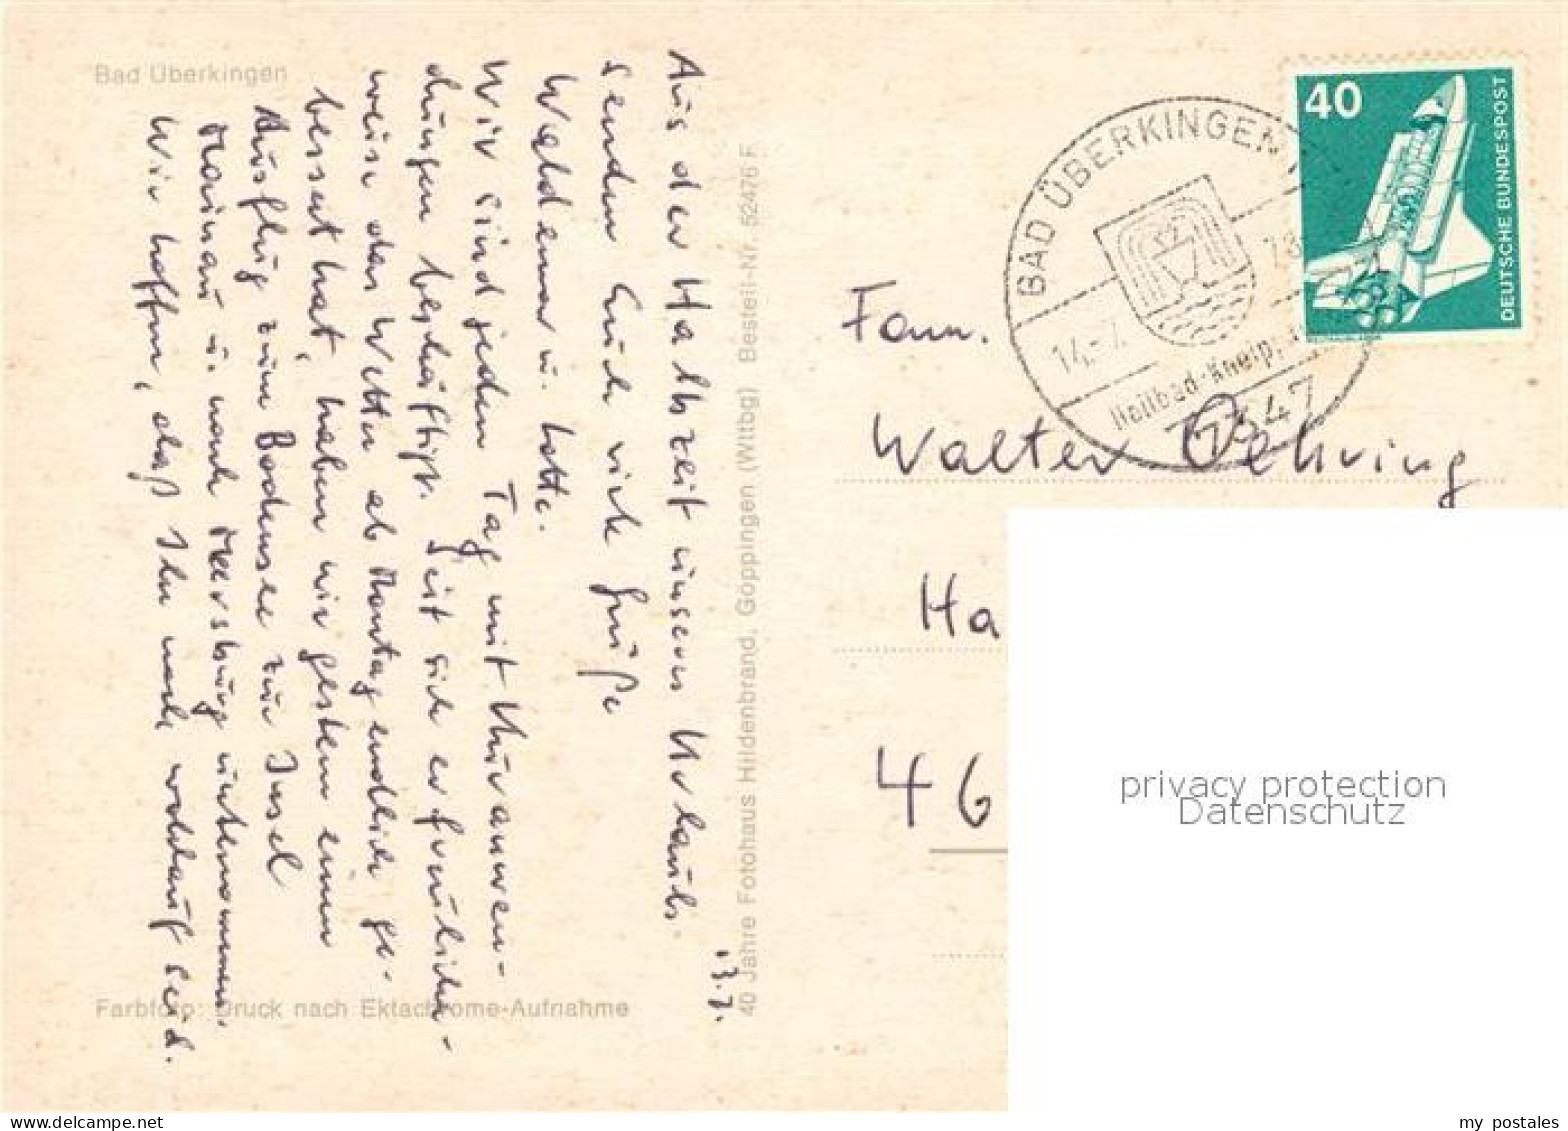 Bad Überkingen
13.7.
Aus der Halbzeit unseres Urlaubs
senden Euch viele Grüße
Waldemar u. Lotte.
Wir sind jeden Tag mit Kuranwen-
dungen beschäftigt. Seit sich erfreulicher-
weise das Wetter ab Montag endlich ge-
bessert hat, haben wir gestern einen
Ausflug zum Bodensee zur Insel
Mainau u. nach Meersburg unternommen.
Wir hoffen, daß Ihr noch wohlauf seid.
Farbfoto: Druck nach Ektachrome-Aufnahme
40 Jahre Fotohaus Hildenbrand, Göppingen (Wttbg) Bestell-Nr. 52476 F
40
DEUTSCHE BUNDESPOST
BAD ÜBERKINGEN
14.-7. 78
Heilbad-Kneip
7347
Fam.
Walter Oehring
Ha
46
privacy protection
Datenschutz
my postales